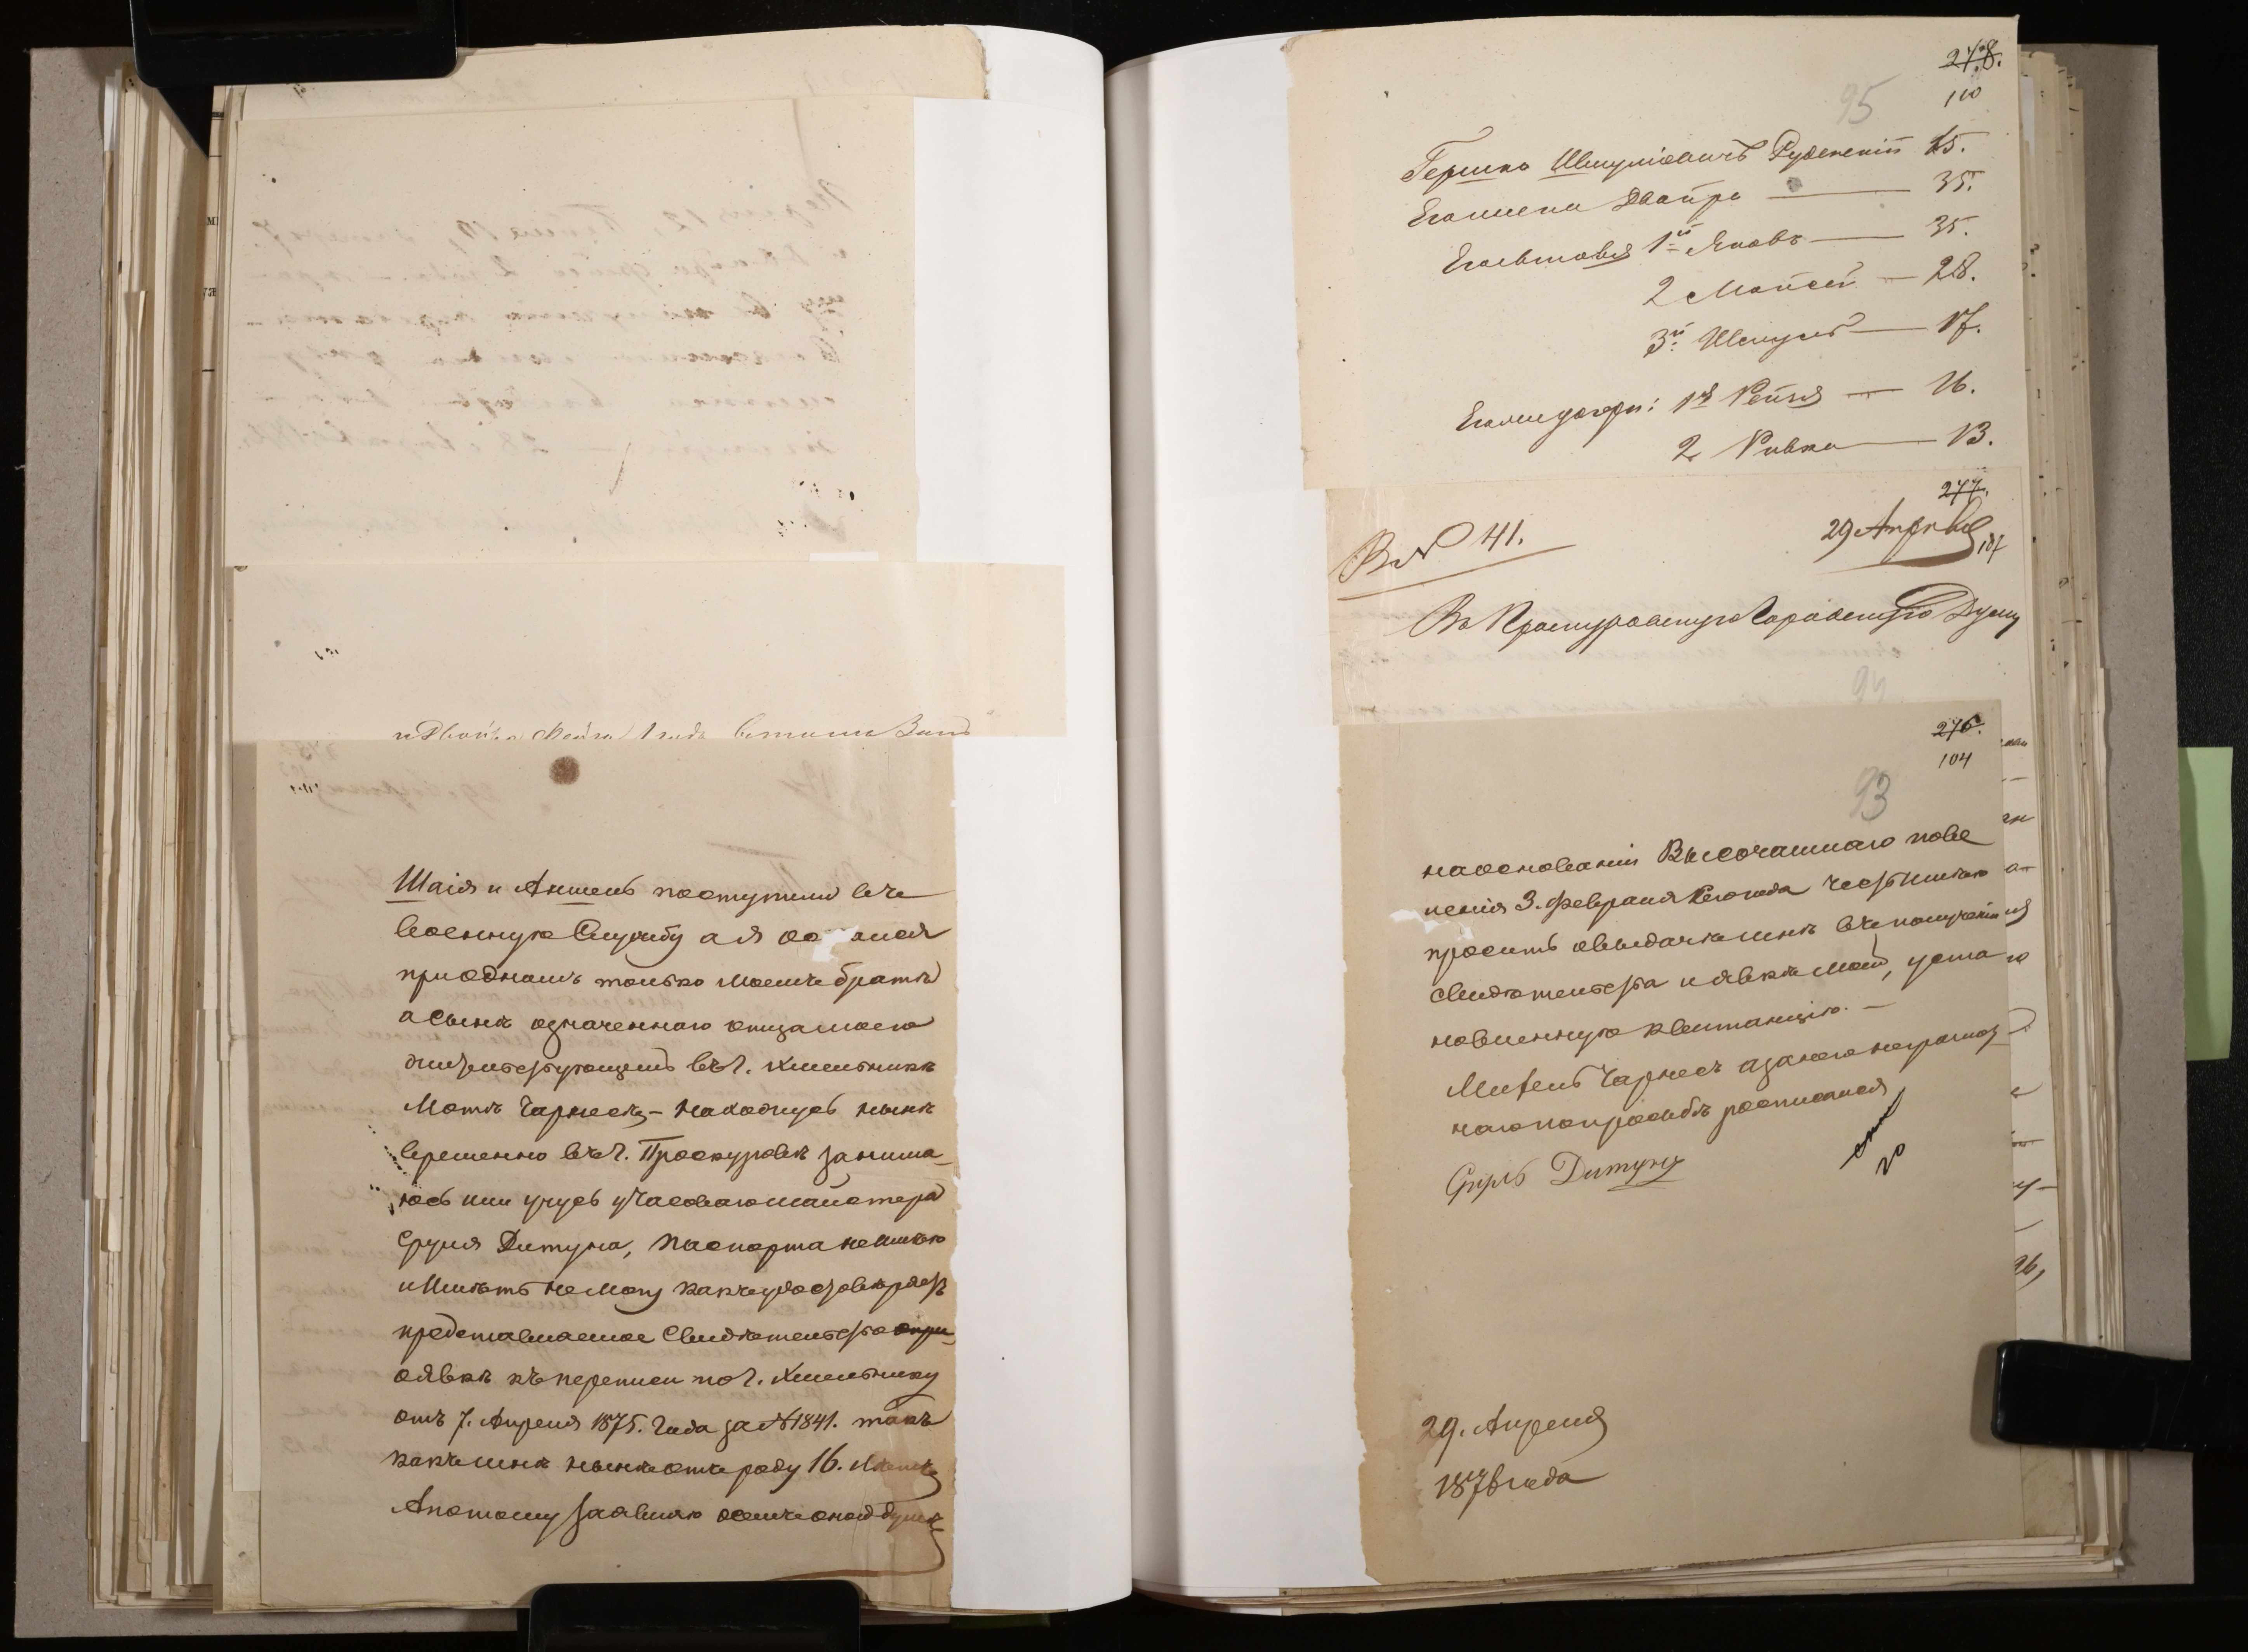 и Двойра Лейза 1 годъ
Шаія и Аншель поступили въ
военную Службу а я остался
при одномъ только моемъ братѣ
а сынѣ означеннаго отца моего
жительствующемъ въ г. Хмельникѣ
Мотѣ Чарнесъ, – Находясь нынѣ
временно въ г. Проскуровѣ занима-
юсь или учусь у часоваго мастера
Сруля Дитуна, паспорта не имѣю
и имѣть не могу какъ удостовѣряетъ
представляемое Свидѣтельство о при-
о явкѣ къ переписи по г. Хмельнику
отъ 7. Апреля 1875. Года за № 1841. такъ
какъ мнѣ нынѣ отъ роду 16. лѣтъ
А потому заявляю о семъ оной думѣ
278.
110
95
Гершко Шмулiовичъ Руденскiй 45.
Его жена Двойра — 35.
Его сыновья 1й Яковъ — 35.
2 Мойсей — 28.
3й Шмуль — 17.
Его дочери: 1я Рейзя — 16.
2 Ривка — 13.
277.
29 Апрѣля
107
В № 41.
Въ Проскуровскую Городскую Думу
94
276.
104
93
на основанiи Высочайшаго пове
ленiя 3. Февраля сего года честь имѣю
просить о выдачѣ мнѣ въ полученiи
свидѣтельства и явкѣ моей, уста
новленную квитанцiю. –
Чарнесъ а за него неграмот
наго по просьбѣ росписался
Сруль Дитунъ
29. Апреля
1876 года